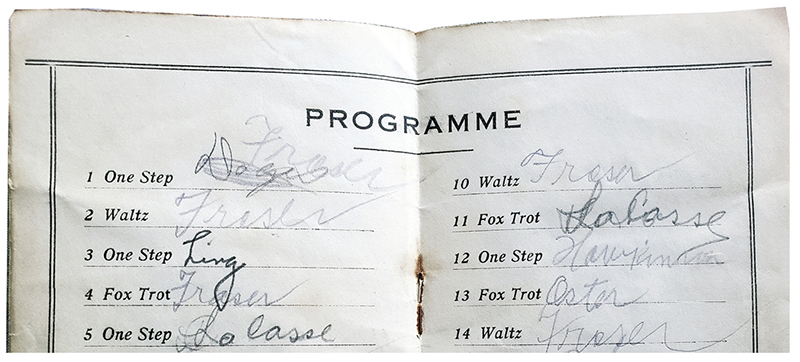 PROGRAMME
1 One Step Fraser
2 Waltz Fraser
3 One Step Ling
4 Fox Trot Fraser
5 One Step LaCasse
10 Waltz Fraser
11 Fox Trot LaCasse
12 One Step
13 Fox Trot Oster
14 Waltz Fraser